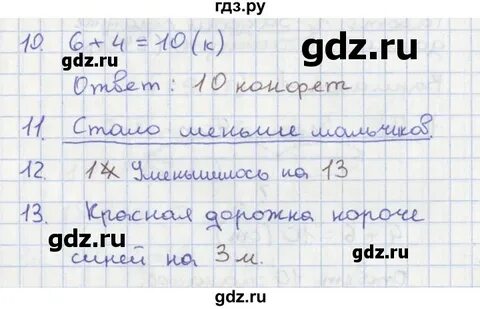 гдз.ру
10. 6 + 4 = 10 (к)
gdz.ru
Ответ: 10 конфет
11. Стало меньше мальчиков.
12. 14 Уменьшилось на 13
13. Красная дорожка короче
gdz.ru
gdz.ru
синей на 3 м.
gdz.ru